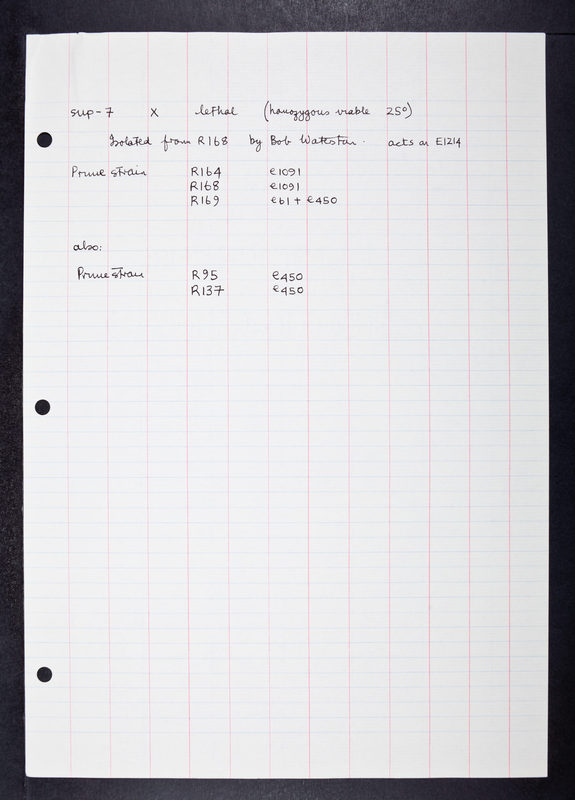 sup-7 X lethal (homozygous viable 25°)
Isolated from R168 by Bob Waterston. acts on E1214
Prime strain R164 e1091
R168 e1091
R169 e61 + e450
also:
Prime strain R95 e450
R137 e450